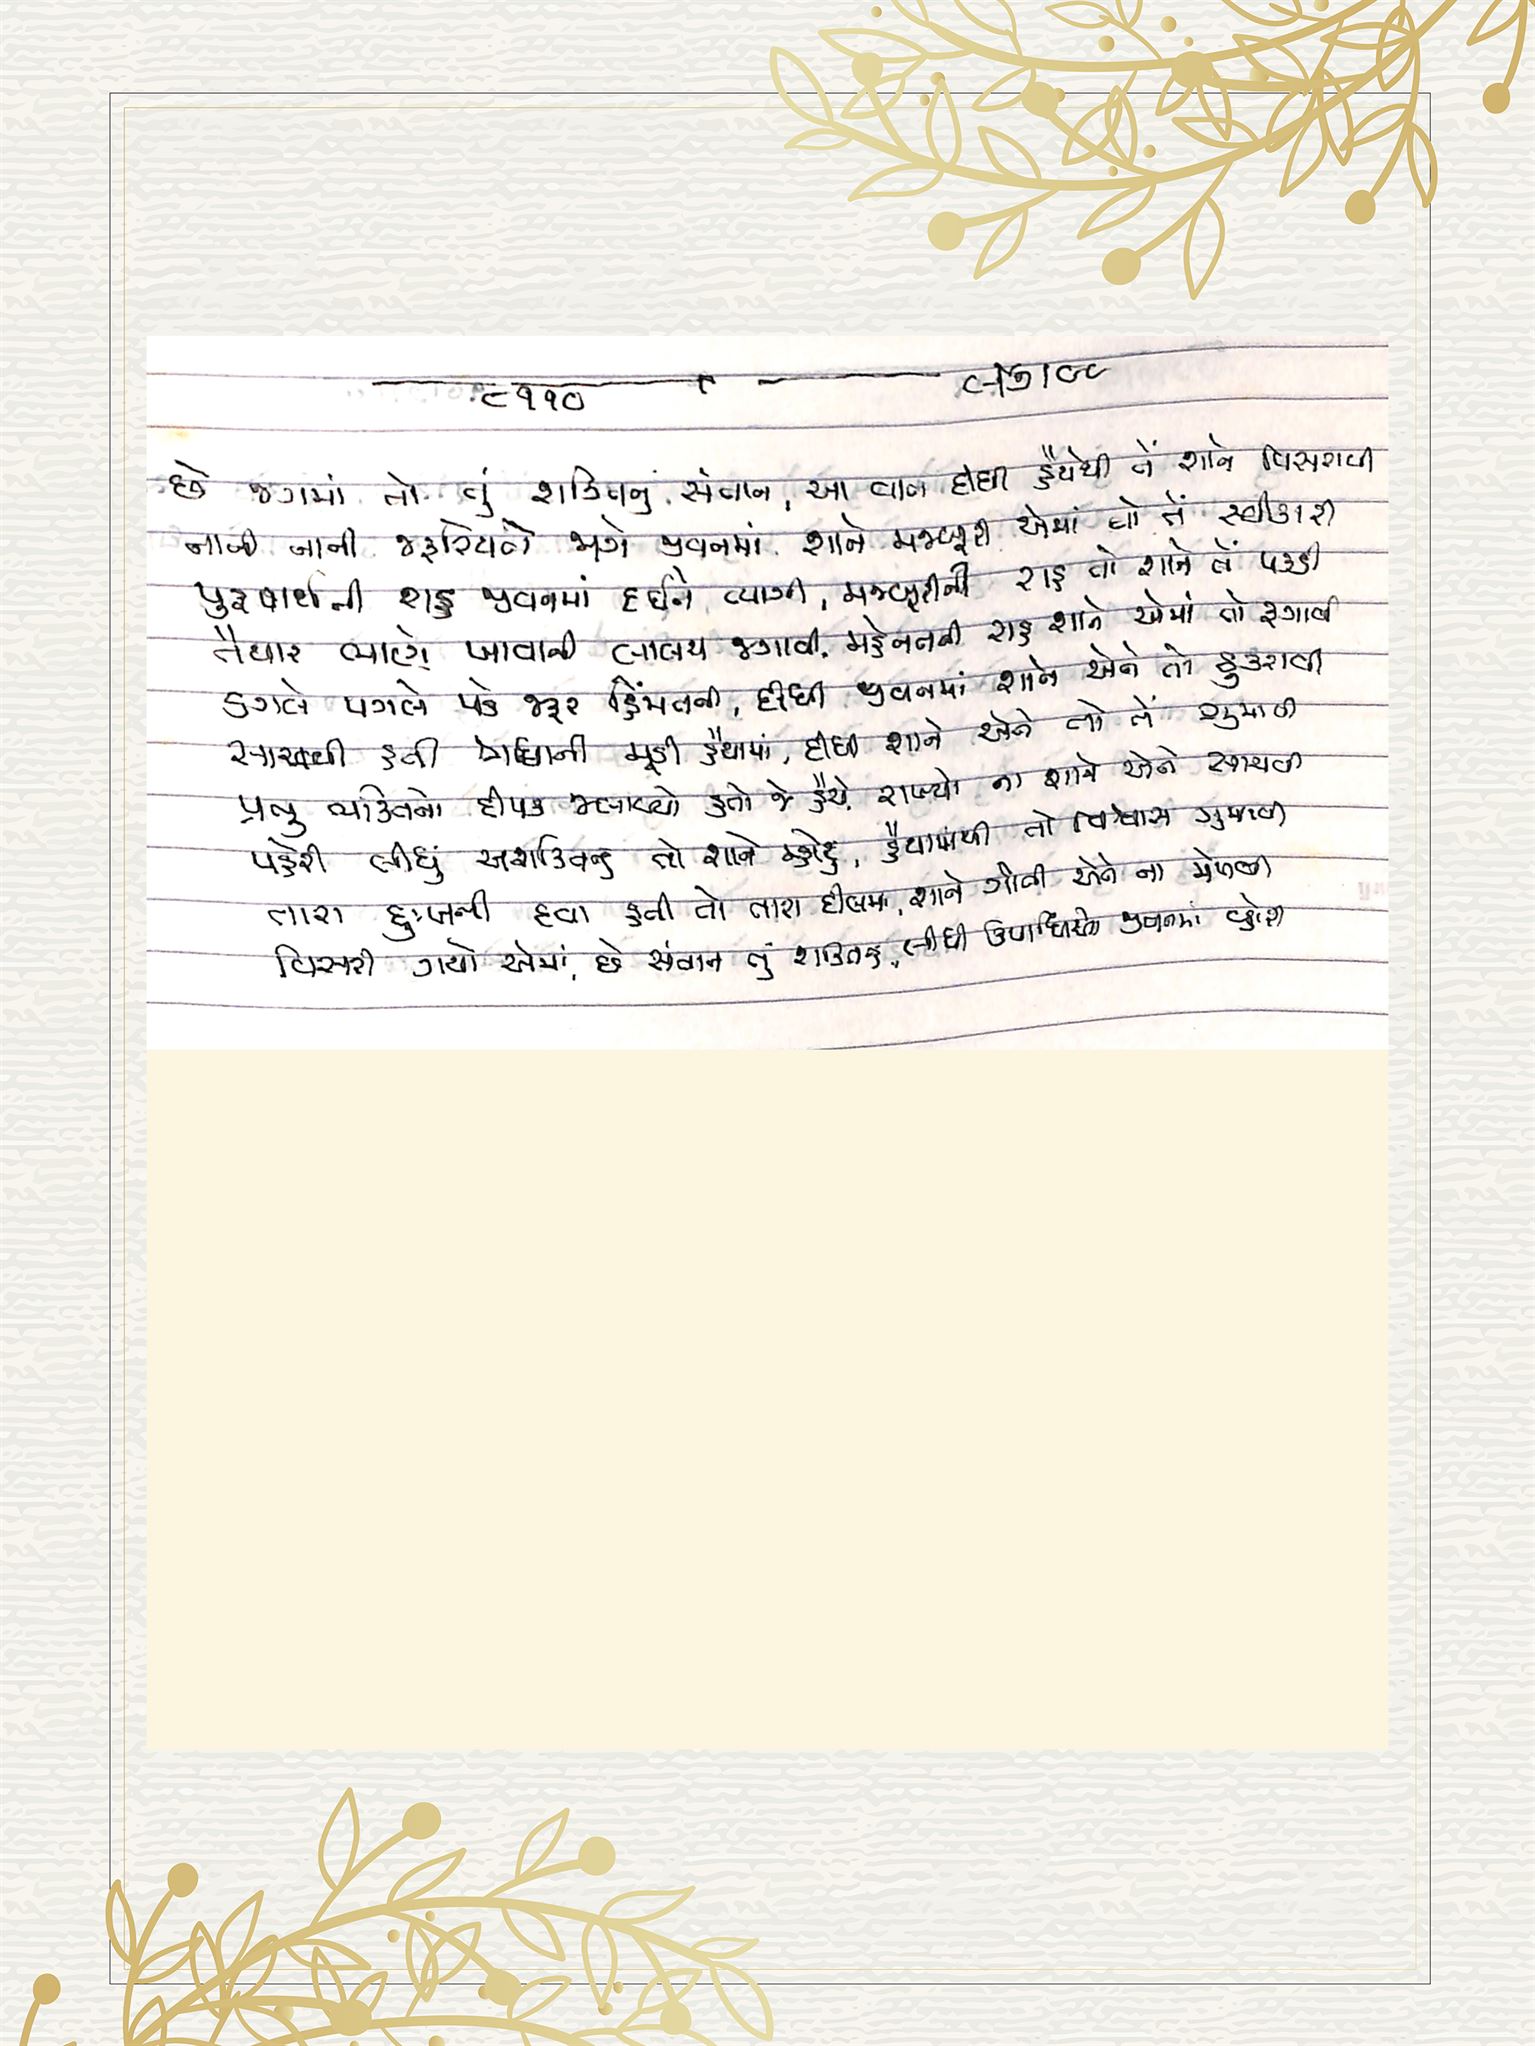 ૮૧૧૦
છે જગમાં તો તું શક્તિનું સંતાન, આ વાત દીધી હૈયેથી તેં શાને વિસરાવી
નાની નાની જરૂરિયાતો માગે જીવનમાં, શાને મજબૂરી એમાં તો તેં સ્વીકારી
પુરૂષાર્થની રાહ જીવનમાં દઈને ત્યાગી, મજબૂરીની રાહ તો શાને તેં પકડી
તૈયાર ભાણે ખાવાની લાલચ જગાવી, મહેનતની રાહ શાને એમાં તો ફગાવી
ડગલે પગલે પડે જરૂર હિંમતની, દીધી જીવનમાં શાને એને તો ઠુકરાવી
સાચવી હતી શ્રદ્ધાની મૂડી હૈયામાં, દીધી શાને એને તો તેં ગુમાવી
પ્રભુ ભક્તિનો દીપક જલાવ્યો હતો જે હૈયે, રાખ્યો ના શાને એને સાચવી
પહેરી લીધું અશક્તિનું તો શાને મ્હોરું, હૈયામાંથી તો વિશ્વાસ ગુમાવી
તારા દુઃખની દવા હતી તો તારા દીલમાં, શાને ગોતી એને ના મેળવી
વિસરી ગયો એમાં, છે સંતાન તું શક્તિનું, લીધી ઉપાધિઓ જીવનમાં વ્હોરી